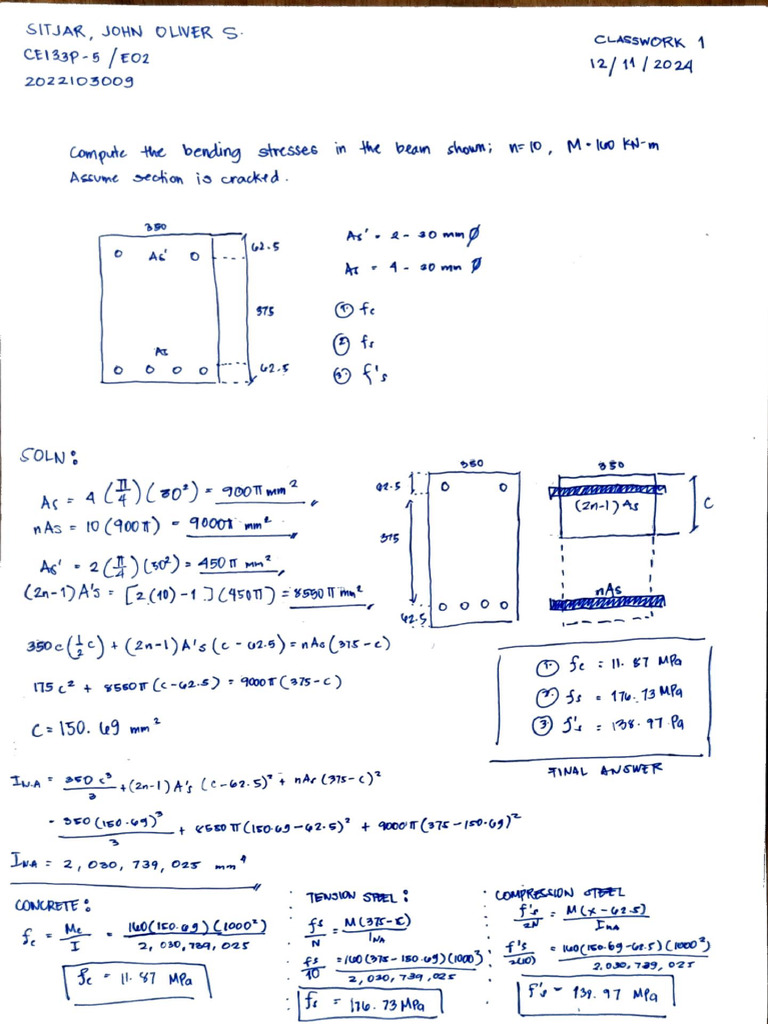 SITJAR, JOHN OLIVER S.
CE133P-5 / E02
2022103009
CLASSWORK 1
12/11/2024
Compute the bending stresses in the beam shown; n=10, M=160 KN-m
Assume section is cracked.
350
As'
62.5
375
As
62.5
As' = 2 - 30 mm Ø
As = 4 - 30 mm Ø
① fc
② fs
③ f's
SOLN:
As = 4 (π/4)(30²) = 900π mm²
nAs = 10(900π) = 9000π mm²
As' = 2(π/4)(30²) = 450π mm²
(2n-1)A's = [2(10)-1](450π) = 8550π mm²
350c(½c) + (2n-1)A's(c-62.5) = nAs(375-c)
175c² + 8550π(c-62.5) = 9000π(375-c)
C = 150.69 mm²
350
62.5
375
62.5
350
(2n-1) As
C
nAs
① fc = 11.87 MPa
② fs = 176.73 MPa
③ f's = 138.97 Pa
FINAL ANSWER
IN.A = 350c³/3 + (2n-1)A's (c-62.5)² + nAs(375-c)²
= 350(150.69)³/3 + 8550π(150.69-62.5)² + 9000π(375-150.69)²
INA = 2,030,739,025 mm⁴
CONCRETE:
fc = Mc/I = 160(150.69)(1000²)/2,030,739,025
fc = 11.87 MPa
TENSION STEEL:
fs/N = M(375-c)/INA
fs/10 = 160(375-150.69)(1000²)/2,030,739,025
fs = 176.73 MPa
COMPRESSION STEEL
f's/2N = M(x-62.5)/INA
f's/2(10) = 160(150.69-62.5)(1000²)/2,030,739,025
f's = 138.97 MPa